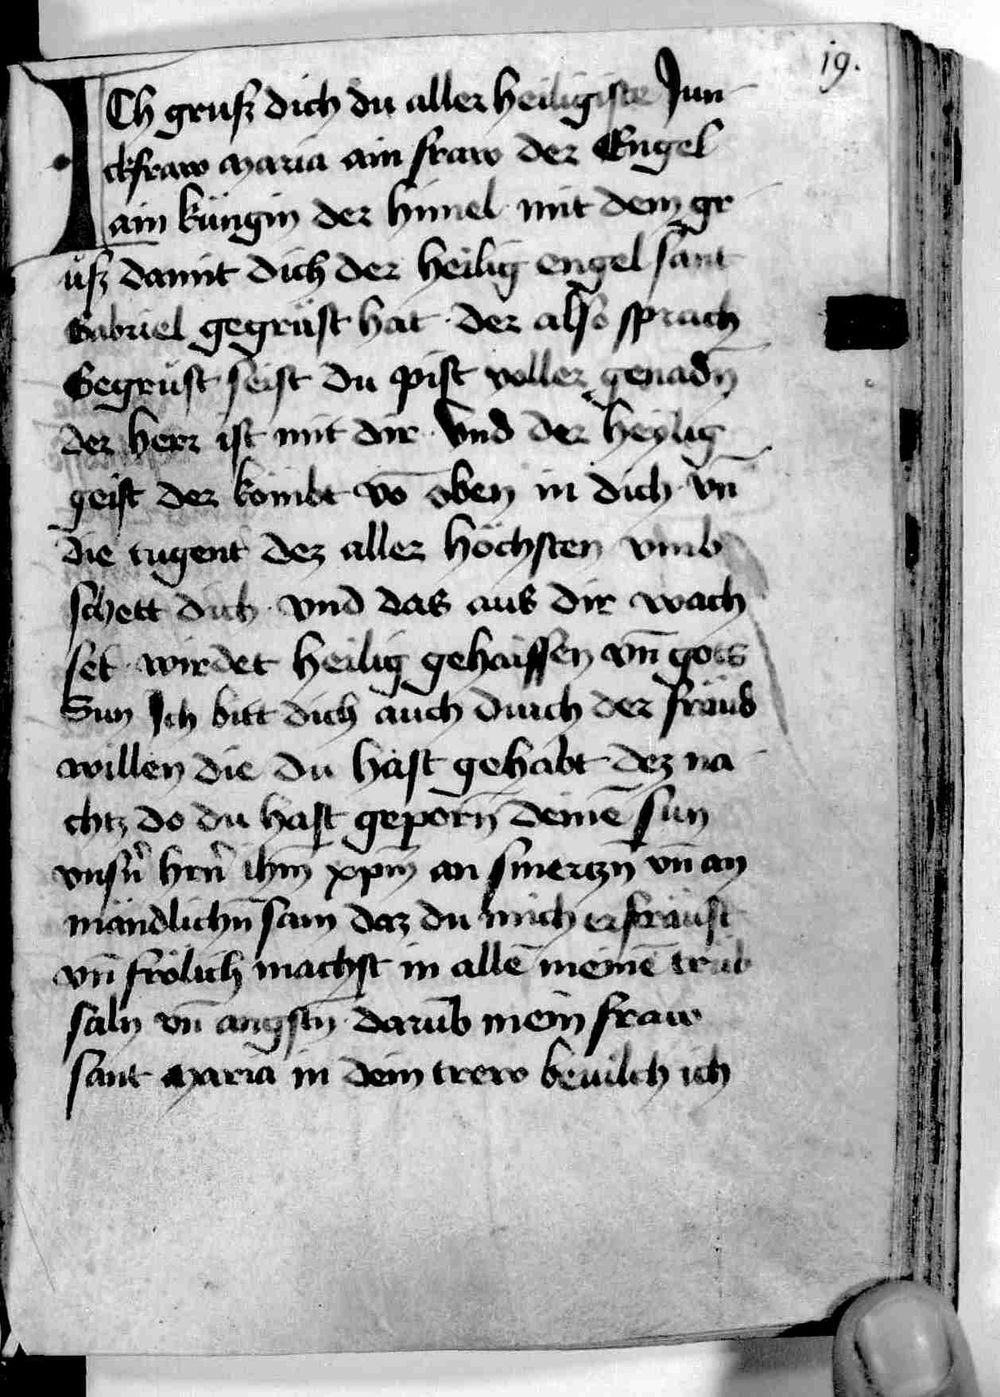 19.
ICh gruß dich du aller heiligiste Jun
ckfraw maria ain fraw der Engel
ain küngin der himel mit dem gr
üß damit dich der heilig engel sant
Gabriel gegrüst hat · der also sprach
Gegrüst seist du pist voller genadn̄
der herr ist mit dir · Vnd der heylig
geist der kömbt vō oben in dich · vn̄
die tugent dez aller höchsten vmb
schett dich · vnd das aus dir wach
set · wirdet heilig gehaissen vn̄ gots
Sun Ich bitt dich auch durch der fräud
willen die du hast gehabt dez na
chtz do du hast geporn̄ deinē sun
vnsn̄ hrn̄ ihm̄ xpm̄ an smertzn̄ vn̄ an
mändlichn̄ sam daz du mich erfräust
vn̄ frölich machst in allē meinē trüb
saln vn̄ angstn̄ · darūb mein fraw
sant maria in dein trew beuilch ich